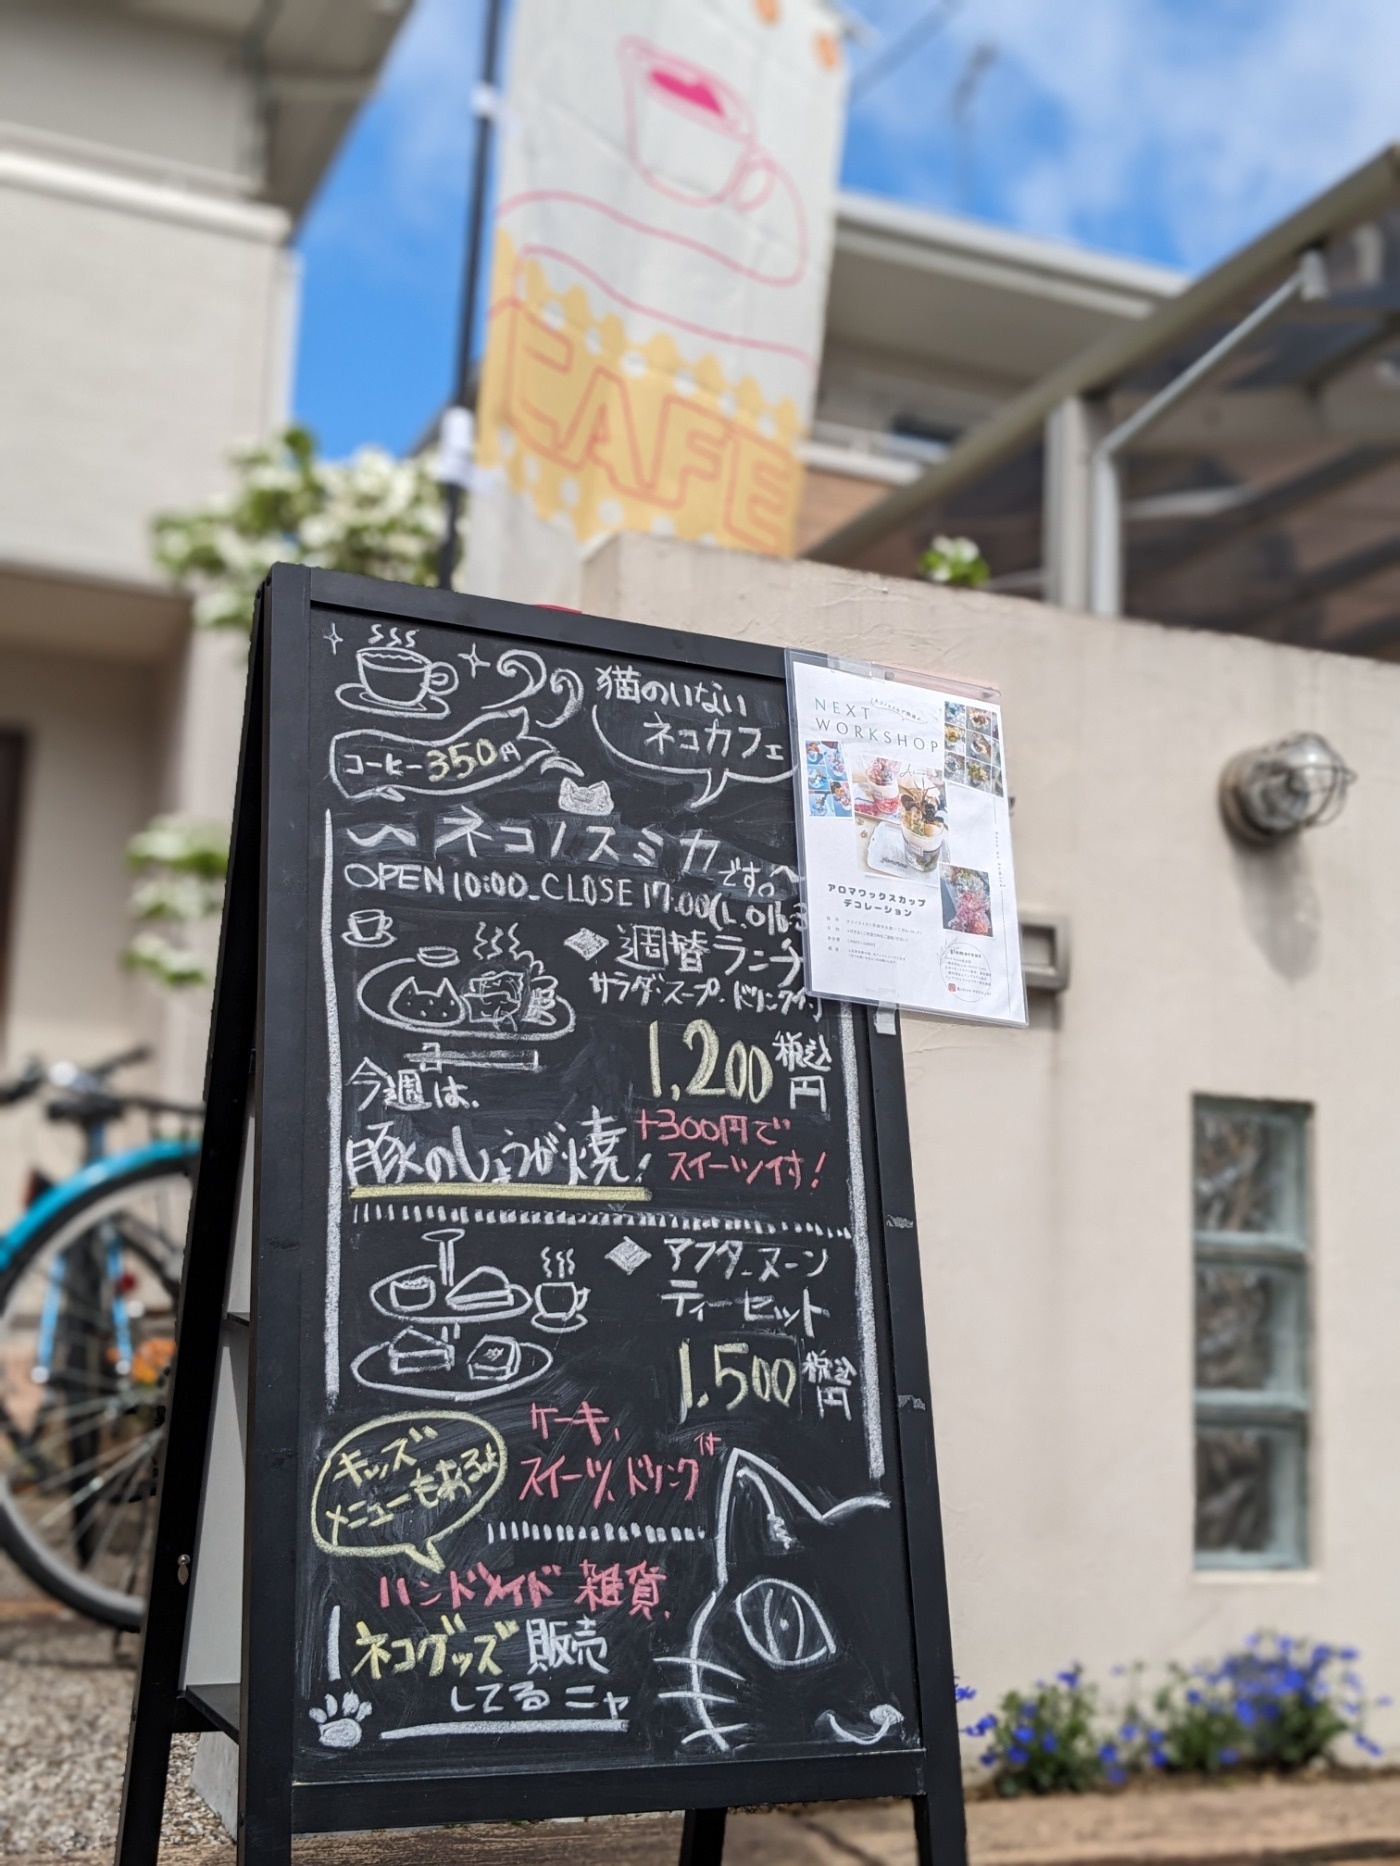 CAFE
猫のいない
ネコカフェ
コーヒー350円
〜ネコノスミカです。〜
OPEN10:00_CLOSE17.00(L.O16:3
◆週替ランチ
サラダ・スープ・ドリンク付
1,200税込円
今週は、
豚のしょうが焼!
+300円で
スイーツ付!
◆アフタヌーン
ティーセット
1,500税込円
ケーキ、
スイーツ、ドリンク付
キッズ
メニューもあるよ
ハンドメイド雑貨、
ネコグッズ販売
してるニャ
NEXT
WORKSHOP
アロマワックスカップ
デコレーション